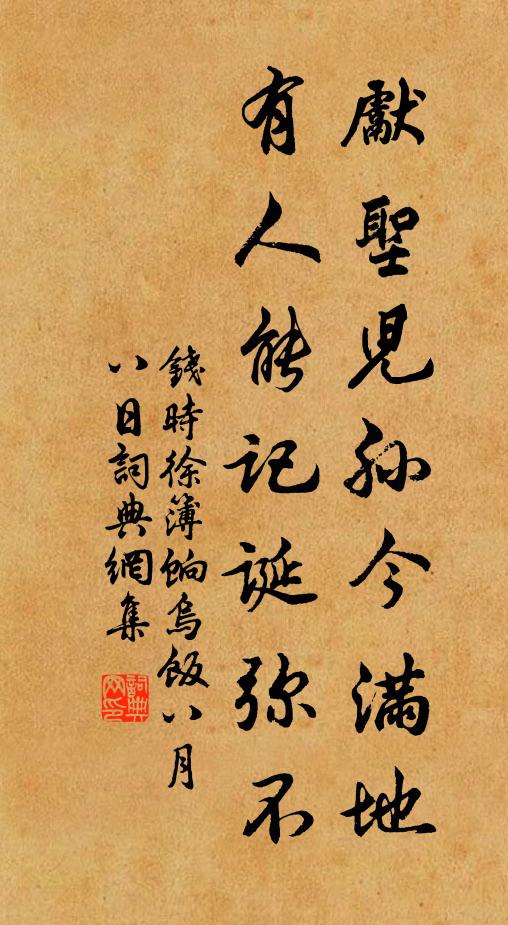 獻聖児孫今滿地
有人能記誕弥不
錢時徐簿餉烏飯八月
八日詞典網集
詞典
网印